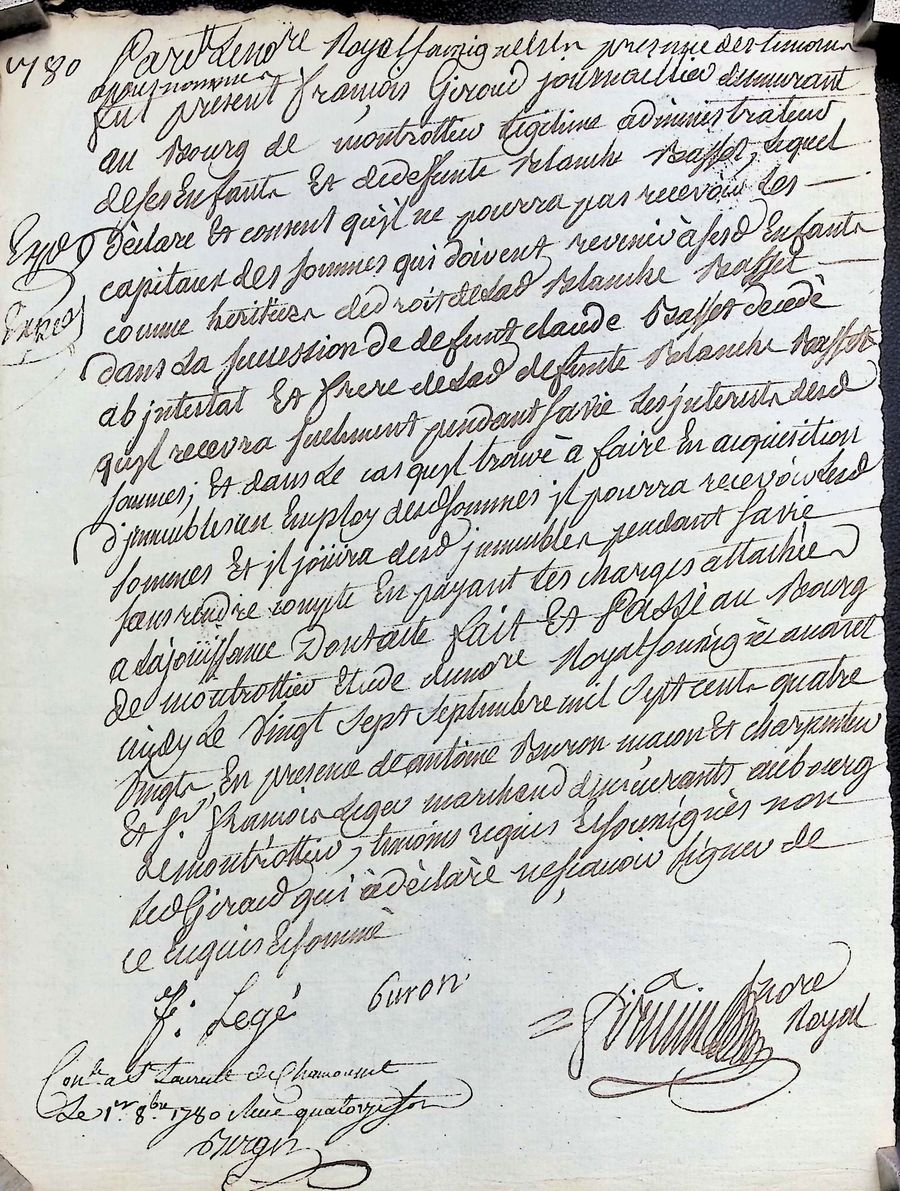 1780
Pard.t le no.re Royal soussigné Et En presence des temoins
apres nommes
fut present françois Giroud journaillier demeurant
au Bourg de montrottier legitime administrateur
de ses Enfants Et de defunte Blanche Basset, lequel
déclare Et consent qu'jl ne pourra pas recevoir les
capitaux des sommes qui doivent revenir à sesd Enfants
comme heritiers de droit de lad Blanche Basset
dans la succession de defunt claude Basset decedé
ab jntestat Et frere de lad defunte Blanche Basset
qu'jl recevra seulement pendant sa vie les jnterets desd
sommes; Et dans le cas qu'jl trouve à faire En acquisition
d'jmmeubles un Employ desd sommes jl pourra recevoir lesd
sommes Et jl joüira desd jmmeubles pendant sa vie
sans rendre compte En payant les charges attachées
a la joüissance Dont acte fait Et Passé au Bourg
de montrottier Etude du no.re Royal soussigné avant
midy le vingt sept septembre mil sept cents quatre
vingts En presence de antoine Buron macon Et charpentier
Et s.r françois Legé marchand demeurants au bourg
de montrottier, temoins requis Et soussignés non
led Giroud qui à déclaré ne sçavoir signer de
ce enquis Et sommé
Exp.d
f. Legé
Buron
no.re
Royal
Con.lé a S.t Laurent de Chamousset
Le 1.er 8.bre 1780 Recu quatorze sols
Berger